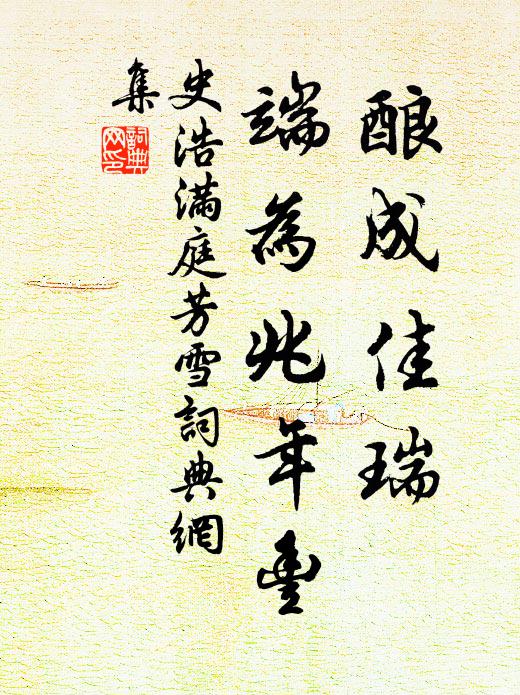 酿成佳瑞
端為兆年豐
史浩满庭芳雪詞典網
集
詞典
网印